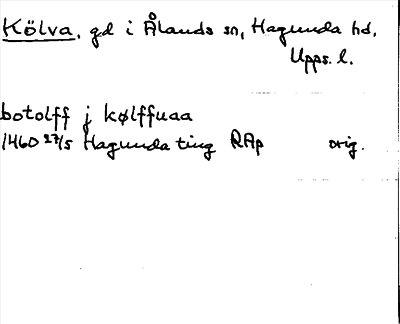 Kölva, gd i Ålands sn, Hagunda hd,
Upps. l.
botolff j kølffuaa
1460 27/5 Hagunda ting RAp orig.